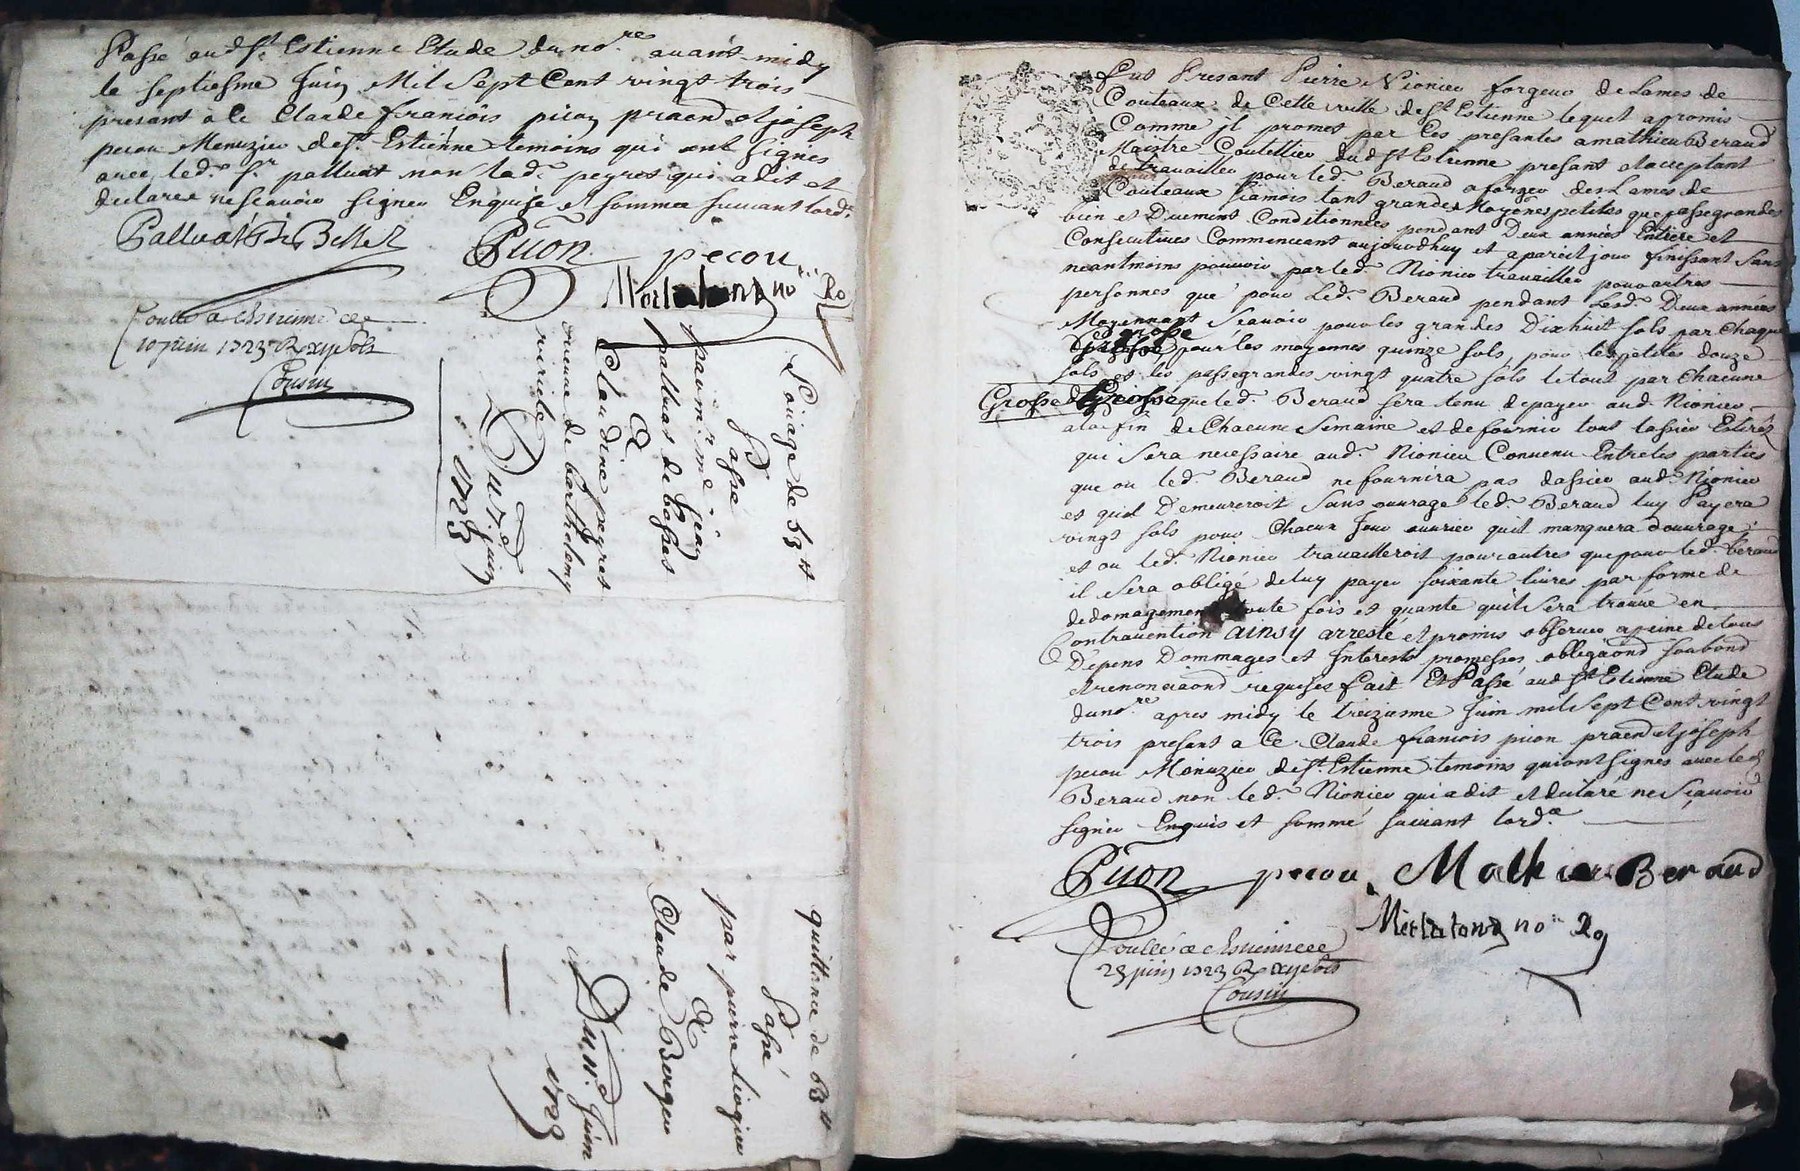 Passé aud St. Estienne Etude du nore. avant midy
le septiesme Juin Mil Sept Cent vingt trois
presant à Ce Claude françois picon praend et joseph
pecou Menuzier de St. Estienne temoins qui ont signés
avec led. Sr. palluat non lad. peyret qui a dit et
declaree ne scavoir signer Enquise et sommee suivant lord.
Palluat De Besset
Picon pecou
no Ro
Coullé a St Estienne ce
10 juin 1723 R xij sols
Cousin
Loüage de 53tt
Passé
par mre. me. jean
palluat de besset
A
Claudine peyret
veuve de barthelemy
Du 7. Juin
1723
quittance de 53tt
Passé
par pierre
A
Claude Berger
Du Juin
1723
Fut Presant Pierre Nionier forgeur de Lames de
Couteaux de Cette ville de St. Estienne lequel a promis
Comme il promet par Ces presantes a mathieu Beraud
Maistre Coutellier dud St Estienne presant et acceptant
de travailler pour led. Beraud a forger des Lames de
Couteaux Siamois tant grandes Moyenes petites que passegrandes
bien et Duement Conditionnées pendant Deux années Entiere et
Consecutives Commenceant aujourdhuy et a pareil jour finissant Sans
neantmoins pouvoir par led. Nionier travailler pour autres
personnes que pour Led. Beraud pendant Lesd. Deux années
Moyennant Scavoir pour les grandes Dixhuit sols par Chaque
grosse pour les moyennes quinze sols, pour les petites douze
sols et les passegrandes vingt quatre sols le tout par Chacune
Grosse que led. Beraud sera tenu de payer aud. Nionier
a la fin de Chacune Semaine et de fournir tout lassier Estiréz
qui Sera necessaire aud. Nionier Convenu Entre les parties
que ou led. Beraud ne fournira pas dassier aud. Nionier
et quil Demeureroit Sans ouvrage led. Beraud luy Payera
vingt sols pour Chacun Jour ouvrier quil manquera douvrage
et ou led. Nionier travailleroit pour autres que pour led. beraud
il Sera obligé de luy payer soixante livres par forme de
dedomagement toute fois et quante quil Sera trouvé en
Contravention ainsy arresté et promis observer a peine de tous
Depens Dommages et Interests promesses obligaõnd soubond
et renonciaond requises fait Et Passé aud St Estienne Etude
du nore. apres midy le treiziesme Juin mil Sept Cent vingt
trois presant a Ce Claude françois picon praend et joseph
pecou Menuzier de St. Estienne temoins qui ont signés avec led
Beraud non led. Nionier qui a dit et declaré ne Sçavoir
signer Enquis et sommé suivant lord.e
Picon pecou Mathieu Beraud
no Ro
Coullé a St Estienne ce
23 juin 1723 R xij sols
Cousin